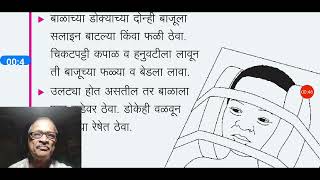 बाळाच्या डोक्याच्या दोन्ही बाजूला
सलाइन बाटल्या किंवा फळी ठेवा.
चिकटपट्टी कपाळ व हनुवटीला लावून
ती बाजूच्या फळ्या व बेडला लावा.
उलट्या होत असतील तर बाळाला
डेवर ठेवा. डोकेही वळवून
या रेषेत ठेवा.
00:4